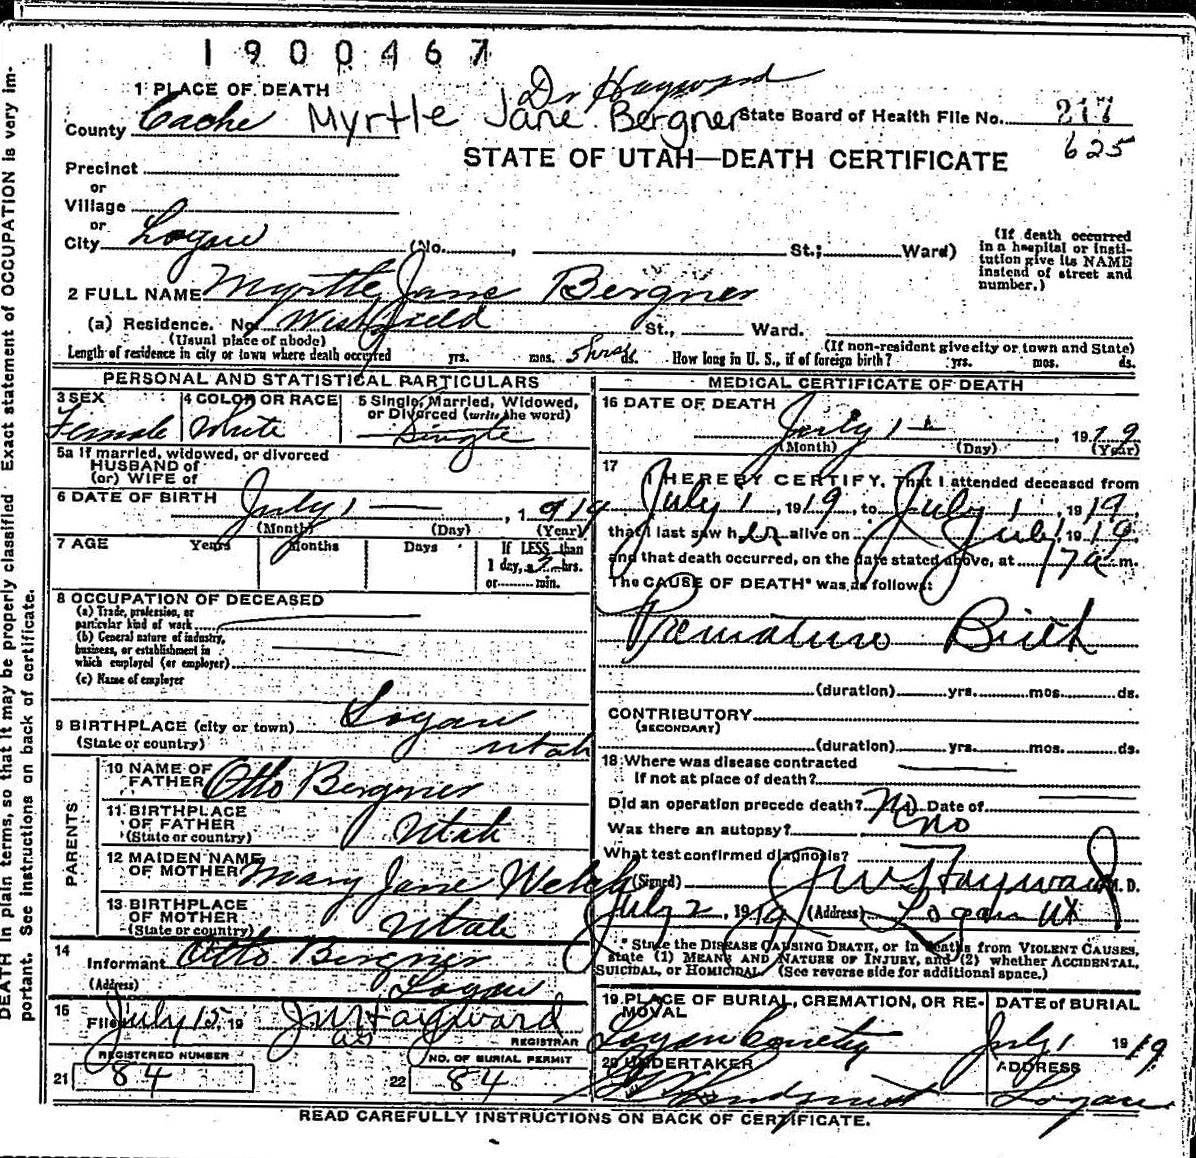 1900467
1 PLACE OF DEATH
Dr Hayward
County Cache Myrtle Jane Bergner State Board of Health File No. 217
625
STATE OF UTAH—DEATH CERTIFICATE
Precinct
or
Village
or
City Logan (No. , St.; Ward)
(If death occurred in a hospital or institution give its NAME instead of street and number.)
2 FULL NAME Myrtle Jane Bergner
(a) Residence. No. Westfield St., Ward.
(Usual place of abode) (If non-resident give city or town and State)
Length of residence in city or town where death occurred yrs. mos. 5 hrs ds. How long in U. S., if of foreign birth? yrs. mos. ds.
PERSONAL AND STATISTICAL PARTICULARS
3 SEX 4 COLOR OR RACE 5 Single, Married, Widowed, or Divorced (write the word)
Female White Single
5a If married, widowed, or divorced
HUSBAND of
(or) WIFE of
6 DATE OF BIRTH
July 1 — , 1919
(Month) (Day) (Year)
7 AGE Years Months Days If LESS than
1 day, hrs.
or min.
8 OCCUPATION OF DECEASED
(a) Trade, profession, or
particular kind of work
(b) General nature of industry,
business, or establishment in
which employed (or employer)
(c) Name of employer
9 BIRTHPLACE (city or town) Logan
(State or country) Utah
PARENTS
10 NAME OF
FATHER Otto Bergner
11 BIRTHPLACE
OF FATHER Utah
(State or country)
12 MAIDEN NAME
OF MOTHER Mary Jane Welch
13 BIRTHPLACE
OF MOTHER Utah
(State or country)
14
Informant Otto Bergner
(Address) Logan
15
Filed July 15, 19 J W Hayward
REGISTRAR
REGISTERED NUMBER NO. OF BURIAL PERMIT
21 84 22 84
MEDICAL CERTIFICATE OF DEATH
16 DATE OF DEATH
July 1 , 1919
(Month) (Day) (Year)
17
I HEREBY CERTIFY, That I attended deceased from
July 1, 1919, to July 1, 1919,
that I last saw her alive on July 1, 1919,
and that death occurred, on the date stated above, at m.
The CAUSE OF DEATH* was as follows:
Premature Birth
(duration) yrs. mos. ds.
CONTRIBUTORY
(SECONDARY)
(duration) yrs. mos. ds.
18 Where was disease contracted
if not at place of death?
Did an operation precede death? No Date of
Was there an autopsy? no
What test confirmed diagnosis?
(Signed) J W Hayward M. D.
July 2, 1919 (Address) Logan UT
* State the DISEASE CAUSING DEATH, or in deaths from VIOLENT CAUSES,
state (1) MEANS AND NATURE OF INJURY, and (2) whether ACCIDENTAL,
SUICIDAL, or HOMICIDAL. (See reverse side for additional space.)
19 PLACE OF BURIAL, CREMATION, OR REMOVAL DATE of BURIAL
July 1 1919
20 UNDERTAKER ADDRESS
Logan
READ CAREFULLY INSTRUCTIONS ON BACK OF CERTIFICATE.
DEATH in plain terms, so that it may be properly classified Exact statement of OCCUPATION is very im-
portant. See instructions on back of certificate.